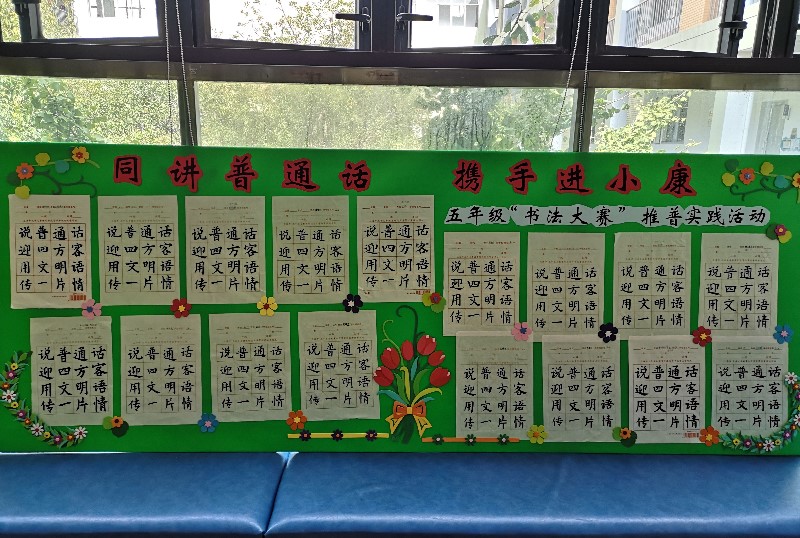 同讲普通话 携手进小康
五年级“书法大赛”推普实践活动
说普通话
迎四方客
用文明语
传一片情
说普通话
迎四方客
用文明语
传一片情
说普通话
迎四方客
用文明语
传一片情
说普通话
迎四方客
用文明语
传一片情
说普通话
迎四方客
用文明语
传一片情
说普通话
迎四方客
用文明语
传一片情
说普通话
迎四方客
用文明语
传一片情
说普通话
迎四方客
用文明语
传一片情
说普通话
迎四方客
用文明语
传一片情
说普通话
迎四方客
用文明语
传一片情
说普通话
迎四方客
用文明语
传一片情
说普通话
迎四方客
用文明语
传一片情
说普通话
迎四方客
用文明语
传一片情
说普通话
迎四方客
用文明语
传一片情
说普通话
迎四方客
用文明语
传一片情
说普通话
迎四方客
用文明语
传一片情
说普通话
迎四方客
用文明语
传一片情